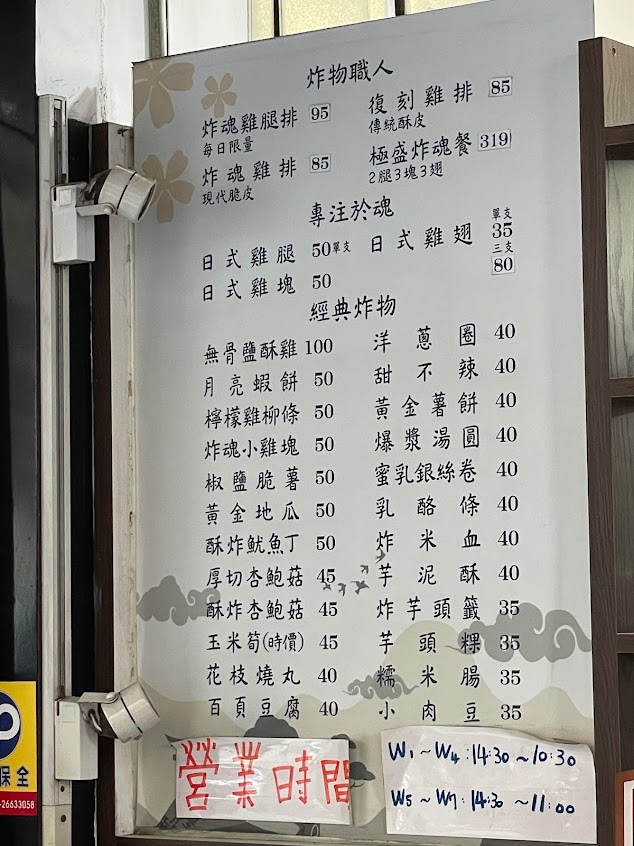 炸物職人
炸魂雞腿排 95
每日限量
炸魂雞排 85
現代脆皮
復刻雞排 85
傳統酥皮
極盛炸魂餐 319
2腿3塊3翅
專注於魂
日式雞腿 50單支
日式雞塊 50
日式雞翅 單支 35
三支 80
經典炸物
無骨鹽酥雞 100
月亮蝦餅 50
檸檬雞柳條 50
炸魂小雞塊 50
椒鹽脆薯 50
黃金地瓜 50
酥炸魷魚丁 50
厚切杏鮑菇 45
酥炸杏鮑菇 45
玉米筍(時價) 45
花枝燒丸 40
百頁豆腐 40
洋蔥圈 40
甜不辣 40
黃金薯餅 40
爆漿湯圓 40
蜜乳銀絲卷 40
乳酪條 40
炸米血 40
芋泥酥 40
炸芋頭籤 35
芋頭粿 35
糯米腸 35
小肉豆 35
營業時間
W1~W4:14:30~10:30
W5~W7:14:30~11:00
保全
-26633058